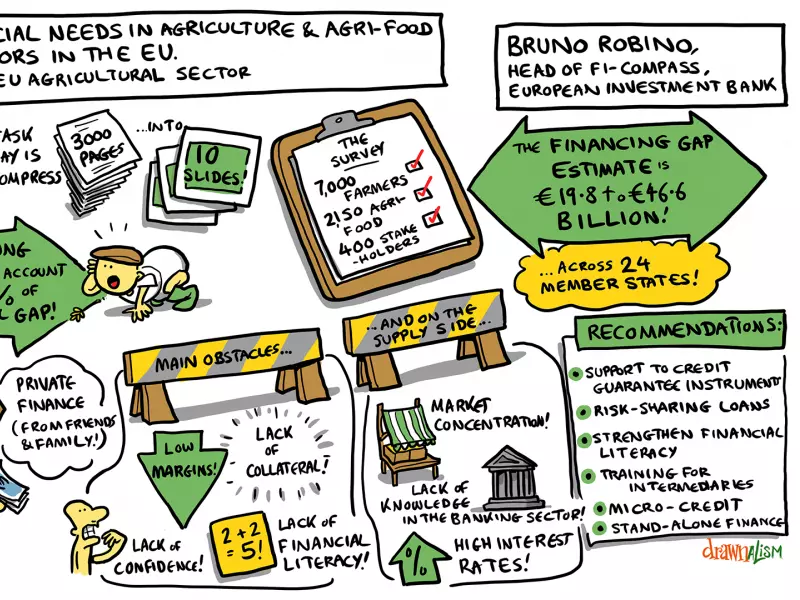 CIAL NEEDS IN AGRICULTURE & AGRI-FOOD
ORS IN THE EU.
EU AGRICULTURAL SECTOR
BRUNO ROBINO,
HEAD OF FI-COMPASS,
EUROPEAN INVESTMENT BANK
TASK
AY IS
OMPRESS
3000
PAGES
...INTO
10
SLIDES!
THE
SURVEY
7,000
FARMERS
2150 AGRI-
FOOD
400 STAKE
-HOLDERS
THE FINANCING GAP
ESTIMATE IS
€19.8 to €46.6
BILLION!
...ACROSS 24
MEMBER STATES!
NG
ACCOUNT
% OF
L GAP!
PRIVATE
FINANCE
(FROM FRIENDS
& FAMILY!)
MAIN OBSTACLES...
LOW
MARGINS!
LACK
OF
COLLATERAL!
LACK OF
CONFIDENCE!
2+2
=5!
LACK OF
FINANCIAL
LITERACY!
...AND ON THE
SUPPLY SIDE...
MARKET
CONCENTRATION!
LACK OF
KNOWLEDGE
IN THE BANKING SECTOR!
%
HIGH INTEREST
RATES!
RECOMMENDATIONS:
SUPPORT TO CREDIT
GUARANTEE INSTRUMENT
RISK-SHARING LOANS
STRENGTHEN FINANCIAL
LITERACY
TRAINING FOR
INTERMEDIARIES
MICRO-CREDIT
STAND-ALONE FINANCE
drawnALISM